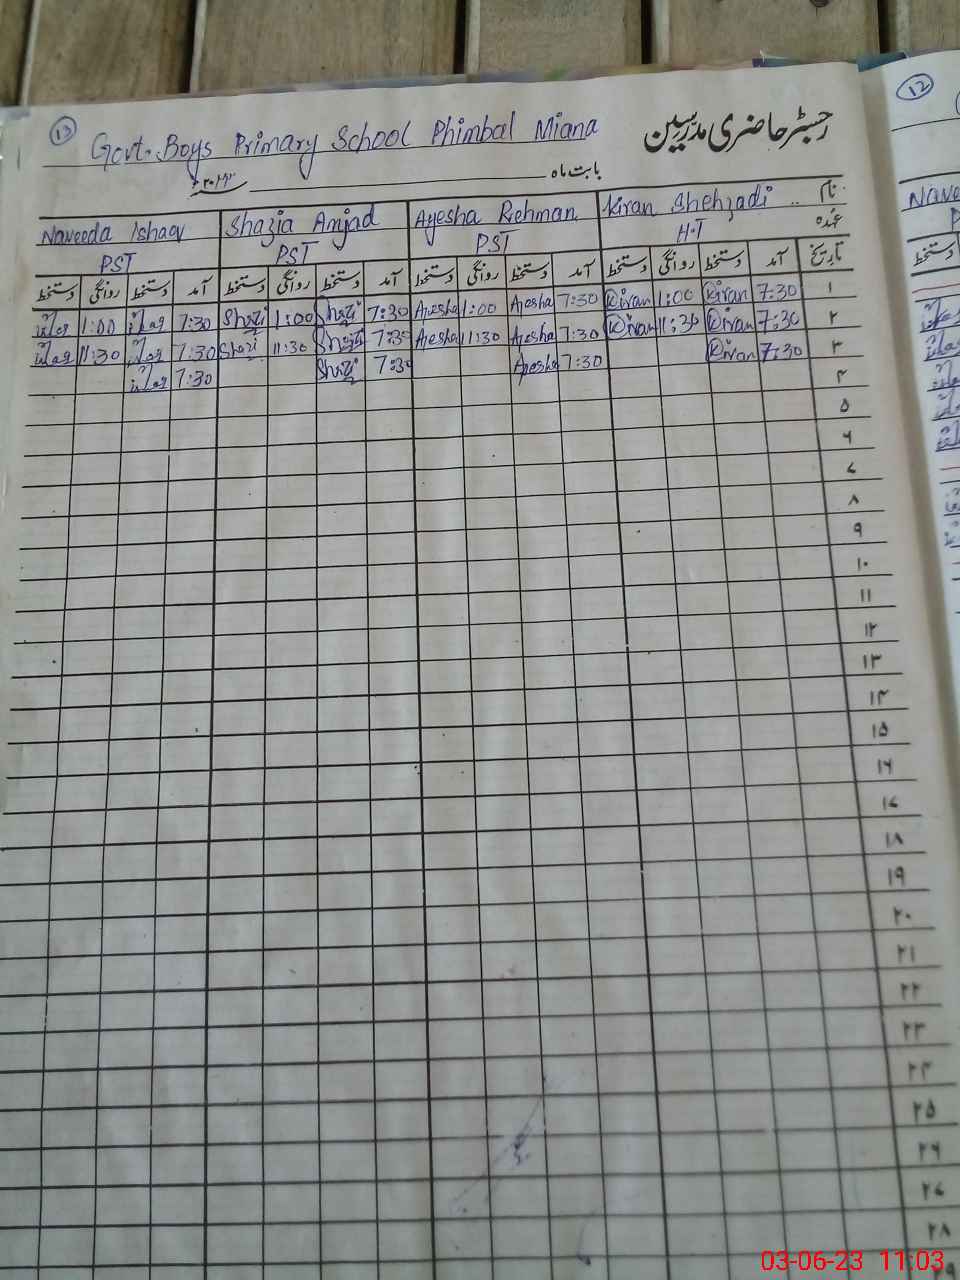 13
Govt. Boys Primary School Phimbal Miana
رجسٹر حاضری مدرسین
بابت ماہ
نام Kiran Shehzadi Ayesha Rehman Shazia Amjad Naveeda Ishaq
عہدہ H.T PST PST PST
تاریخ آمد دستخط روانگی دستخط آمد دستخط روانگی دستخط آمد دستخط روانگی دستخط آمد دستخط روانگی دستخط
۱ 7:30 Kiran 1:00 Kiran 7:30 Ayesha 1:00 Ayesha 7:30 Shazi 1:00 Shazi 7:30 1:00
۲ 7:30 Kiran 11:30 Kiran 7:30 Ayesha 11:30 Ayesha 7:30 Shazi 11:30 Shazi 7:30 11:30
۳ 7:30 Kiran 7:30 Ayesha 7:30 Shazi 7:30
۴
۵
۶
۷
۸
۹
۱۰
۱۱
۱۲
۱۳
۱۴
۱۵
۱۶
۱۷
۱۸
۱۹
۲۰
۲۱
۲۲
۲۳
۲۴
۲۵
۲۶
۲۷
۲۸
12
03-06-23 11:03